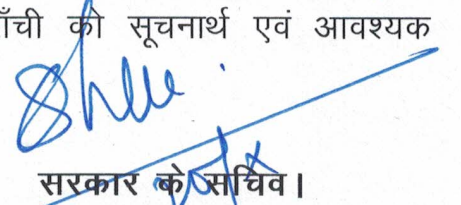 राँची को सूचनार्थ एवं आवश्यक
सरकार के सचिव।